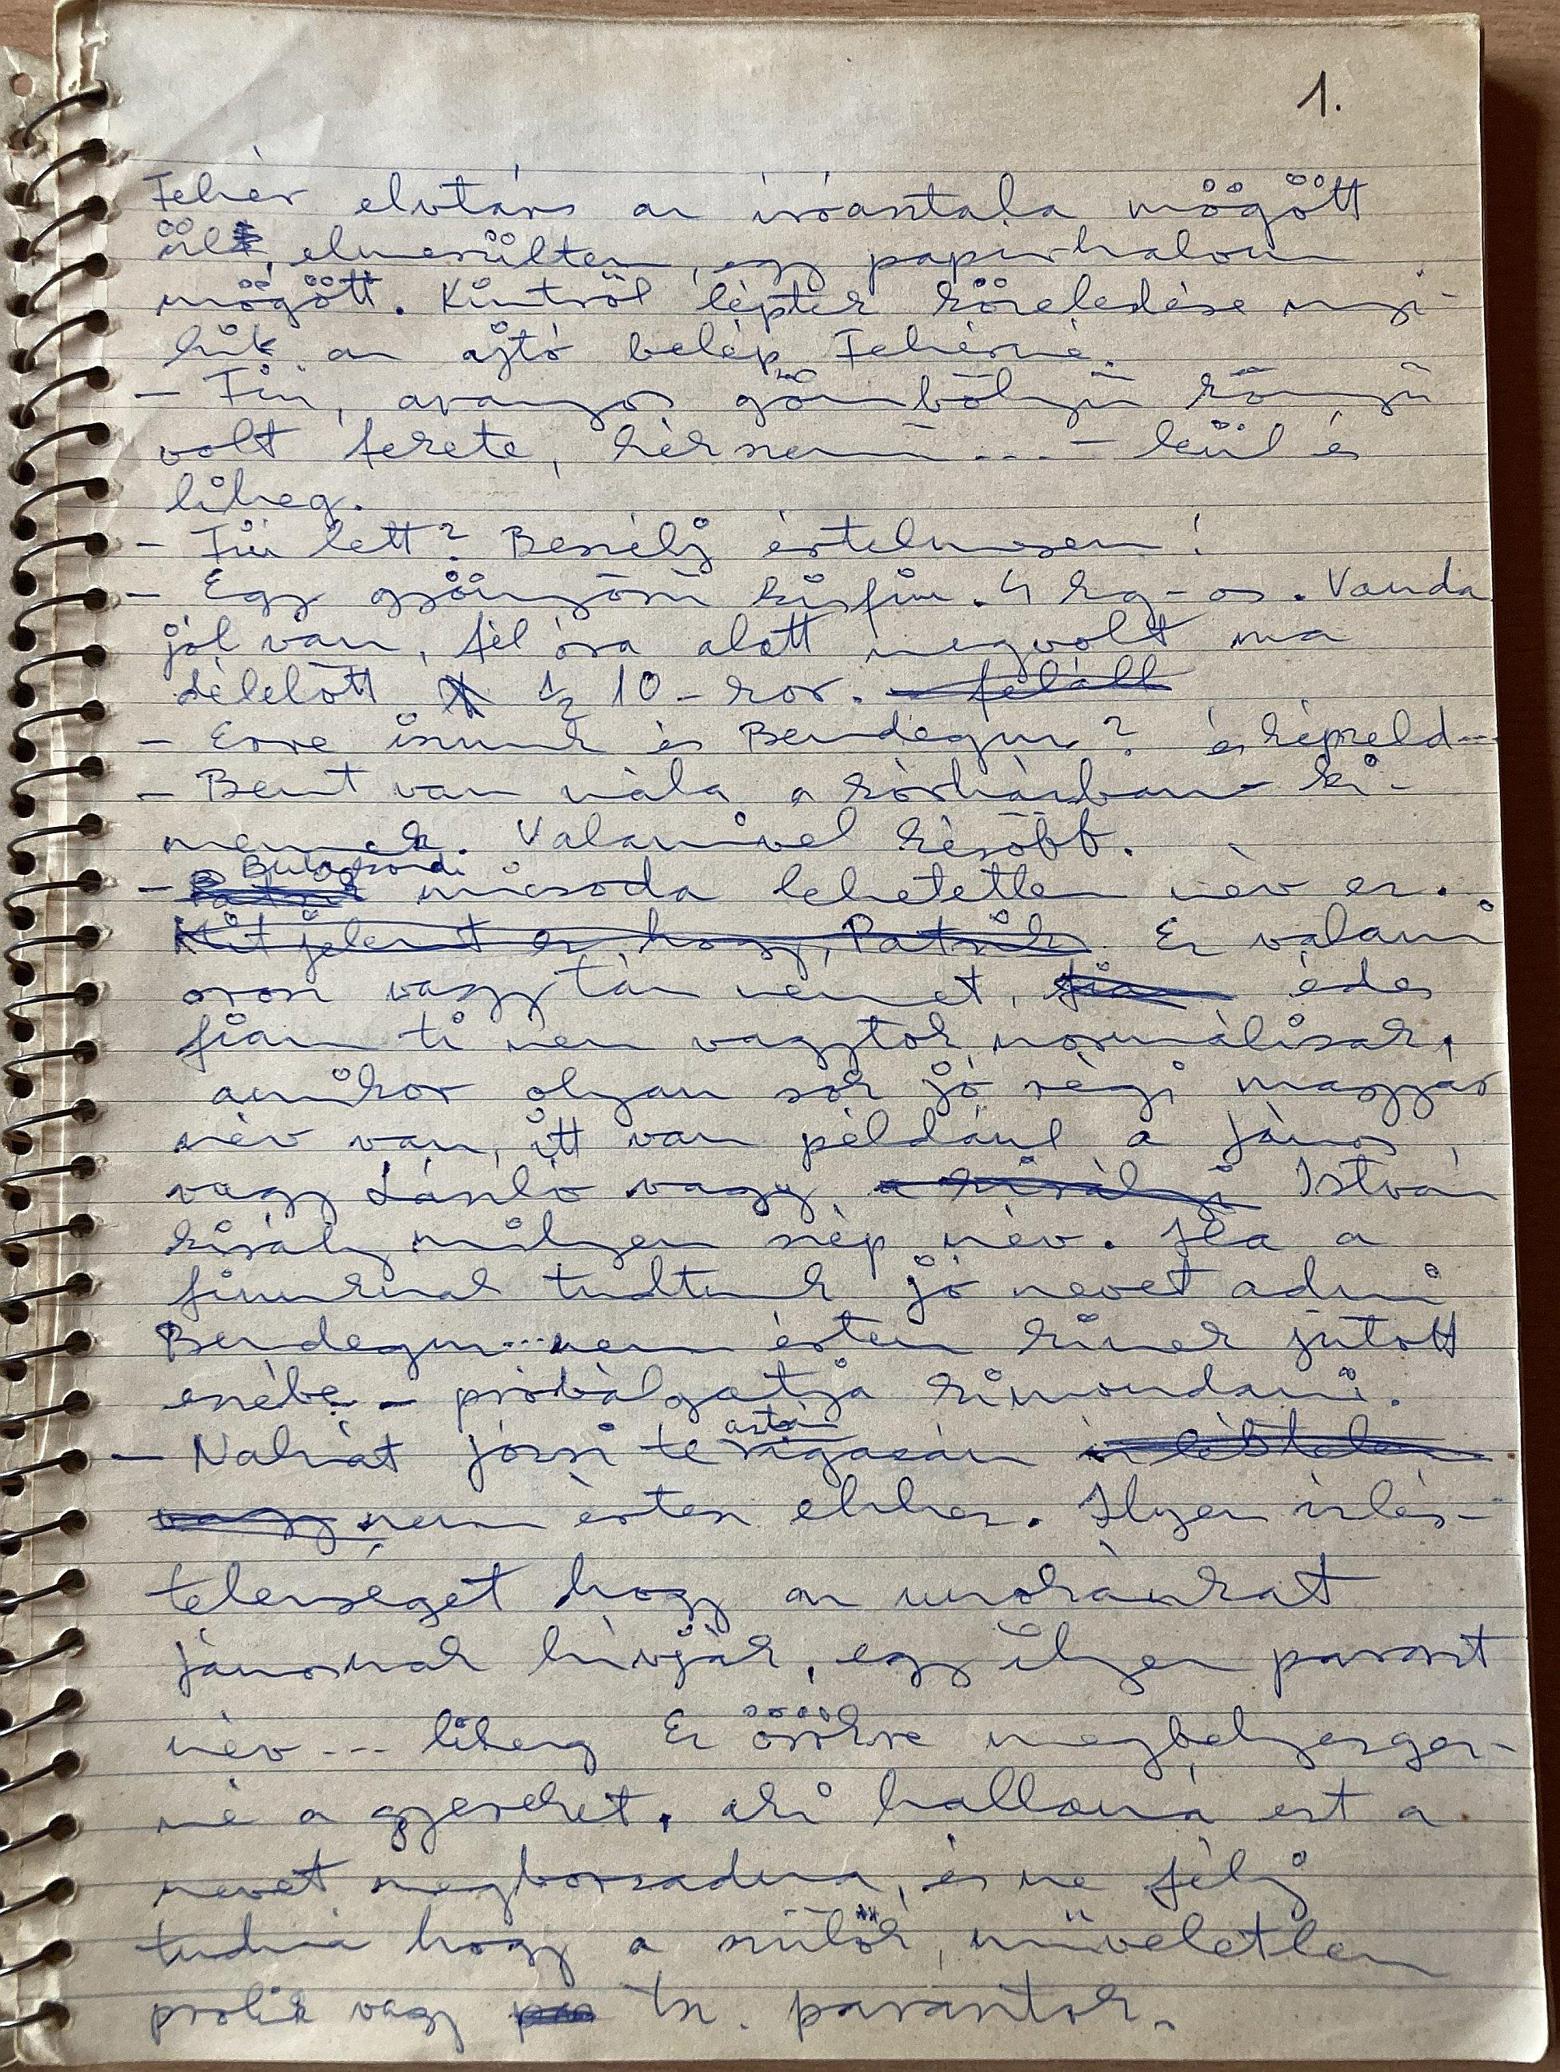 1.
Fehér elvtárs az íróasztala mögött
ül, elmerülten, egy papírhalom
mögött. Kintről léptek közeledése nyí-
lik az ajtó belép Feherné.
- Fiú, aranyos gömbölyű rózsaszínű
volt fekete, kék szemű... - leül és
liheg.
- Fiú lett? Beszélj értelmesen!
- Egy gyönyörű kisfiú. 4 kg-os. Vanda
jól van, fél óra alatt megvolt ma
délelőtt 1/2 10-kor. felállt
- Erre iszunk és Bendegúz? és képzeld...
- Bent van nála a kórházban ki-
mennek. Valamivel később.
- Bulapordi micsoda lehetetlen név ez.
Mit jelent ez, hogy, Patrik Ez valami
orosz vagy tán német, fiam édes
fiam ti nem vagytok normálisak,
amikor olyan sok jó régi magyar
név van, itt van például a János
vagy László vagy a királyi István
király milyen szép név. Ha a
fiunknak tudtunk jó nevet adni
Bendegúz... nem értem kinek jutott
eszébe - próbálgatja kimondani.
- Nahát józsi te aztán igazán
vagy nem értesz ehhez. Ilyen izlés-
telenséget hogy az unokánkat
jánosnak hívják, egy ilyen paraszt
név... liheg Ez örökre megbélyegez-
né a gyereket. aki hallaná ezt a
nevet megborzadna, és ne félj
tudná hogy a szülők, műveletlen
prolik vagy tsz. parasztok.